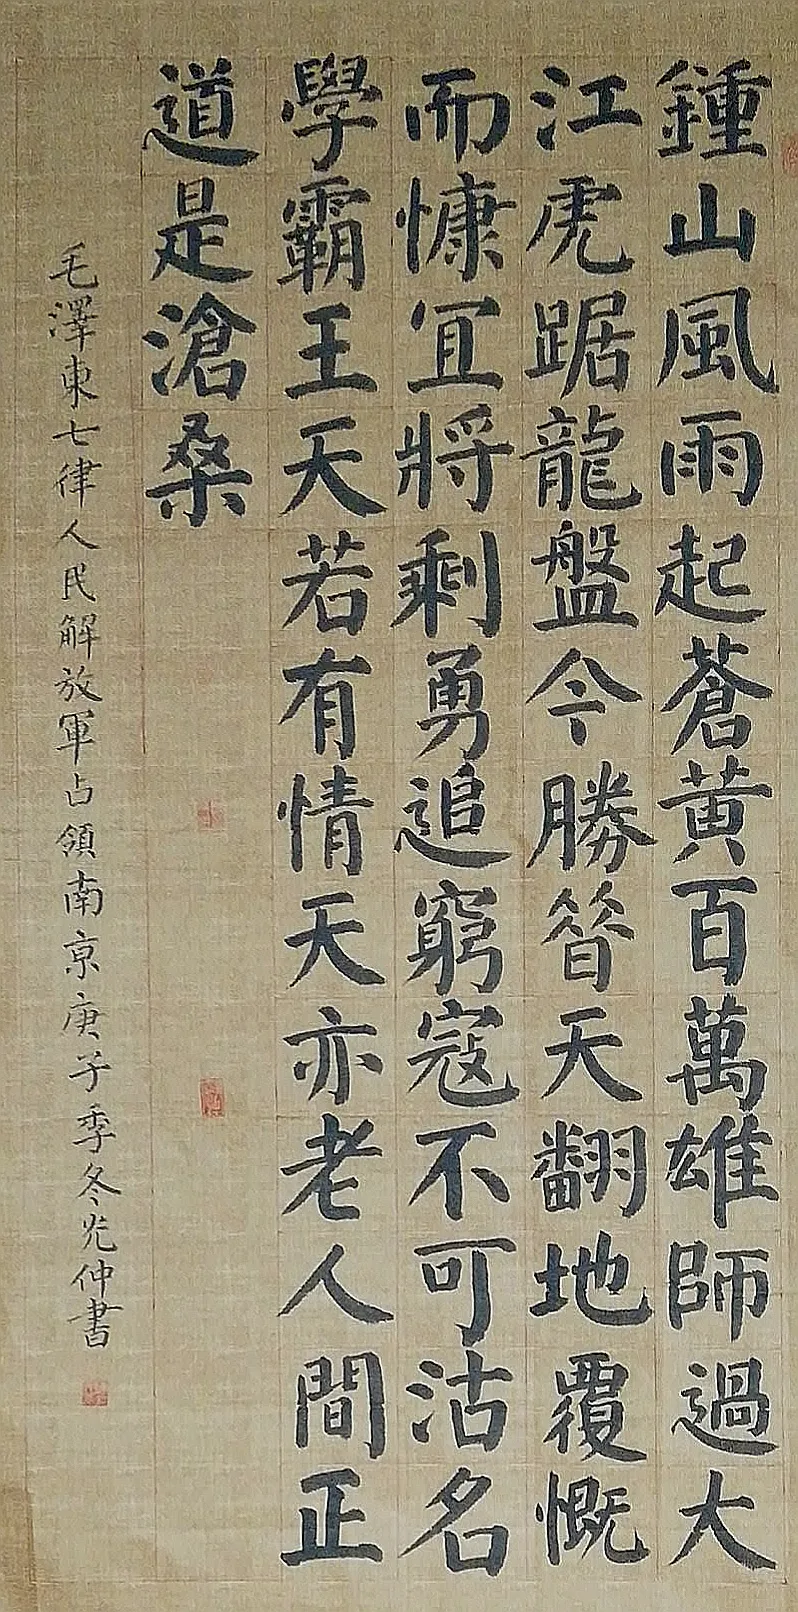 鍾山風雨起蒼黃百萬雄師過大
江虎踞龍盤今勝簪天翻地覆慨
而慷宜將剩勇追窮寇不可沽名
學霸王天若有情天亦老人間正
道是滄桑
毛澤東七律人民解放軍占領南京庚子季冬光仲書